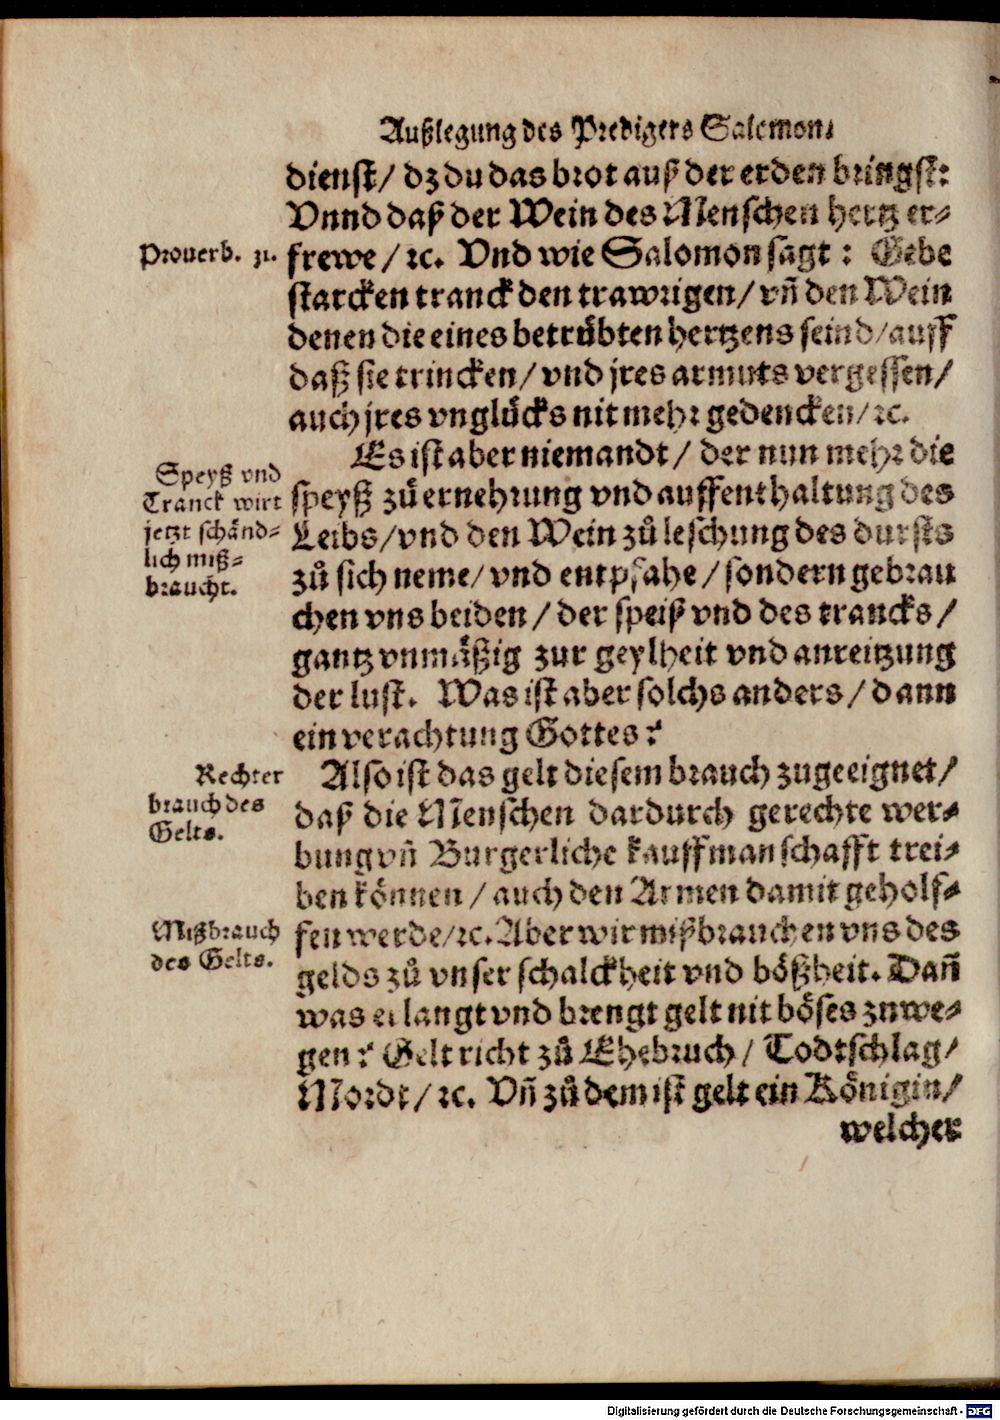 Außlegung des Predigers Salomon,
dienst/ dz du das brot auß der erden bringst:
Vnnd daß der Wein des Menschen hertz er-
Prouerb. 31.
frewe/ ꝛc. Vnd wie Salomon sagt: Gebe
starcken tranck den trawrigen/ vñ den Wein
denen die eines betrübten hertzens seind/ auff
daß sie trincken/ vnd jres armuts vergessen/
auch jres vnglücks nit mehr gedencken/ ꝛc.
Es ist aber niemandt/ der nun mehr die
Speyß vnd
Tranck wirt
jetzt schänd-
lich miß-
braucht.
speyß zů ernehrung vnd auffenthaltung des
Leibs/ vnd den Wein zů leschung des dursts
zů sich neme/ vnd entpfahe/ sondern gebrau
chen vns beiden/ der speiß vnd des trancks/
gantz vnmäßig zur geylheit vnd anreitzung
der lust. Was ist aber solchs anders/ dann
ein verachtung Gottes?
Rechter
brauch des
Gelts.
Also ist das gelt diesem brauch zugeeignet/
daß die Menschen dardurch gerechte wer-
bung vñ Burgerliche kauffmanschafft trei-
ben können/ auch den Armen damit geholf-
Mißbrauch
des Gelts.
fen werde/ ꝛc. Aber wir mißbrauchen vns des
gelds zů vnser schalckheit vnd bößheit. Dañ
was erlangt vnd brengt gelt nit böses zuwe-
gen? Gelt richt zů Ehebruch/ Todtschlag/
Mordt/ ꝛc. Vñ zů dem ist gelt ein Königin/
welcher
Digitalisierung gefördert durch die Deutsche Forschungsgemeinschaft - DFG